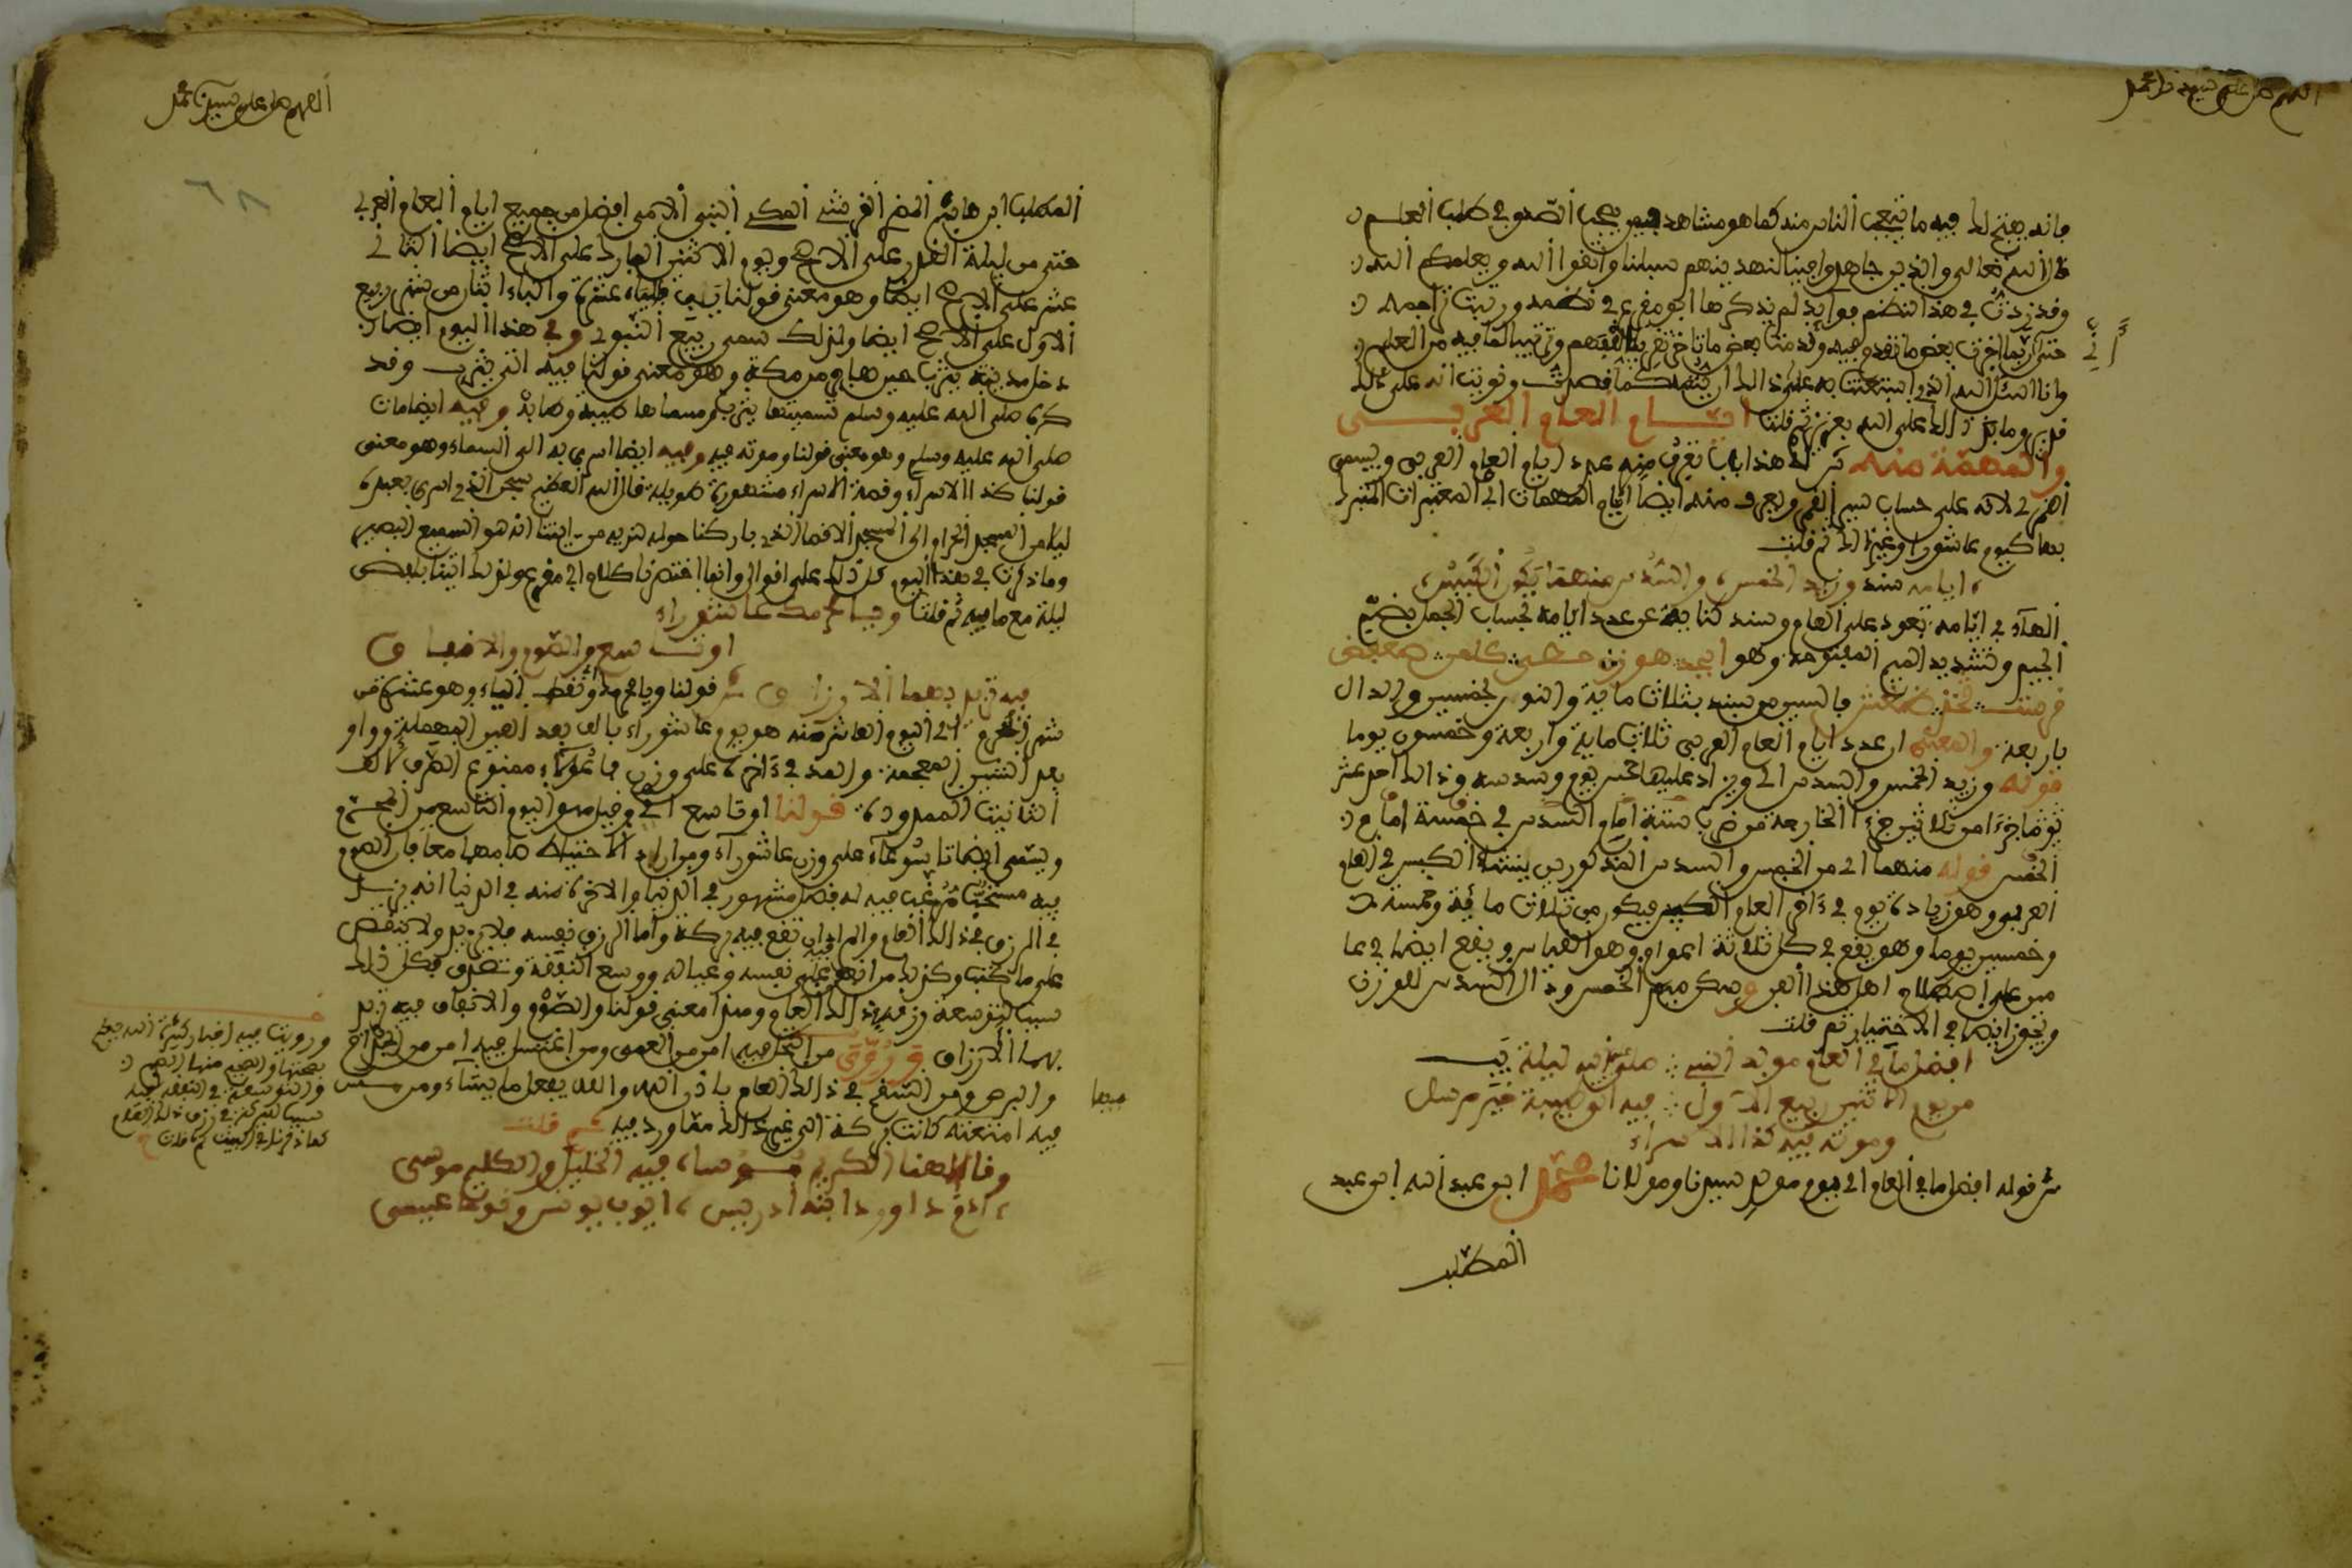 اللهم صل على سيدنا محمد
فانه يفتح له فيه ما يتعجب الناس منه كما هو مشاهد فيمن يحب الصدق في طلب العلم
قال الله تعالى والذين جاهدوا فينا لنهدينهم سبلنا واتقوا الله ويعلمكم الله
وقد زدت في هذا النظم فوايد لم يذكرها ابو مقرع في نظمه ورتبت تراجمه
حتى ربما اخرت بعض ما تقدم فيه وقدمت بعض ما تاخر تقريبا للفهم وترتيبا لما فيه من العلم
وانا اسئل الله الذي استعنت به على ذالك ان يتمه كما قصدت ونويت انه على ذلك
قدير وما ذالك على الله بعزيز ثم قلت ايام العام العربي
والمهمة منه ش هذا باب تعرف منه عدد ايام العام العربي ويسمى
القمري لانه على حساب سير القمر ويعرف منه ايضا ايام المهمات اي المعتبرات المتبرك
بها كيوم عاشورا وغير ذالك ثم قلت
ايامه سند وزيد الخمس والسدس منهما يكون الكبس
الهاء في ايامه تعود على العام وسند كناية عن عدد ايامه بحساب الجمل بضم
الجيم وتشديد الميم المفتوحة وهو ابجد هوز حطي كلمن صعفض
قرست ثخذ ظغش فالسين من سند بثلاث ماية والنون بخمسين والدال
باربعة والمعنى ان عدد ايام العام العربي ثلاث ماية واربعة وخمسون يوما
قوله وزيد الخمس والسدس اي ويزاد عليها خمس يوم وسدسه وذالك احد عشر
جزءا من ثلاثين جزءا الخارجة من ضرب ستة امام السدس في خمسة امام
الخمس قوله منهما اي من الخمس والسدس المذكورين ينشأ الكبس في العام
العربي وهو زيادة يوم في ءاخر العام الكبيس فيكون من ثلاث ماية وخمسة
وخمسين يوما وهو يقع في كل ثلاثة اعوام وهو القياس ويقع ايضا في عا
مين على اصطلاح اهل هذا الفن وسكن ميم الخمس ودال السدس للوزن
ويجوز ايضا في الاختيار ثم قلت
افضل ما في العام مولد النبي صلى الله ليلة يب
من يوم الاثنين ربيع الاول فيه اتى طيبة خير مرسل
وموته فيه كذا الاسراء
ش قوله افضل ما في العام اي يوم مولد سيدنا ومولانا محمد ابن عبد الله ابن عبد
المطلب
اللهم صل على سيدنا محمد
٦٨
المطلب ابن هاشم القرشي المكي النبي الامي افضل من جميع ايام العام العربي
حتى من ليلة القدر على الارجح ويوم الاثنين الوارد على الارجح ايضا الثاني
عشر على الارجح ايضا وهو معنى قولنا يب فالياء عشرة والباء اثنان من شهر ربيع
الاول على الارجح ايضا ولذلك سمي ربيع النبوي وفي هذا اليوم ايضا
دخل مدينته يثرب حين هاجر من مكة وهو معنى قولنا فيه اتى يثرب وقد
كره صلى الله عليه وسلم تسميتها يثرب وسماها طيبة وطابة وفيه ايضا مات
صلى الله عليه وسلم وهو معنى قولنا وموته فيه وفيه ايضا اسري به الى السماء وهو معنى
قولنا كذا الاسراء وقصة الاسراء مشهورة طويلة قال الله العظيم سبحن الذي اسرى بعبده
ليلا من المسجد الحرام الى المسجد الاقصا الذي باركنا حوله لنريه من ايتنا انه هو السميع البصير
وما ذكرت في هذا اليوم كل ذلك على اقوال وانما اختصرنا كلام ابي مقرع ولذلك اتينا بلفظ
ليلة مع ما فيه ثم قلت وجاء لمحمد عاشوراء
او تاسع والصوم والانفاق
فيه تزيد بهما الارزاق ش
شهر المحرم اي اليوم العاشر منه هو يوم عاشوراء بالف بعد العين المهملة وواو
بعد الشين المعجمة والمد في ءاخره على وزن فاعولاء ممنوع الصرف لالف
التانيث الممدودة قولنا او تاسع اي وقيل هو اليوم التاسع من المحرم
ويسمى ايضا تاسوعاء على وزن عاشوراء ومن اراد الاحتياط صامهما معا فان الصوم
فيه مستحب مرغب فيه له فضل مشهور في الدنيا والاخرة منه في الدنيا انه يزيد
في الرزق في ذالك العام والمراد ان تقع فيه بركة واما الرزق نفسه فلا يزيد ولا ينقص
على ما كتب وكذلك من انفق على نفسه وعياله ووسع النفقة وتصدق فكل ذالك
سبب لتوسعة رزقه في ذالك العام وهذا معنى قولنا والصوم والانفاق فيه تزيد
بهما الارزاق وروي من اكتحل فيه امن من العمى ومن اغتسل فيه امن من الجذام
والبرص ومن السقم في ذالك العام باذن الله والله يفعل ما يشاء ومن
فيه امتعته كانت بركة الى غير ذالك مما ورد فيه ثم قلت
فيها
ورويت فيه اخبار كثيرة الله يعلم
بصحتها
والتوسعة في النفقة فيه
سبب للبركة في رزق ذلك العام
كما ذكرنا في البيت ثم قلت
وفا الهنا الكريم موسا فيه الخليل والكليم موسى
ادم داوود ابنه ادريس ايوب يونس وقوما عيسى